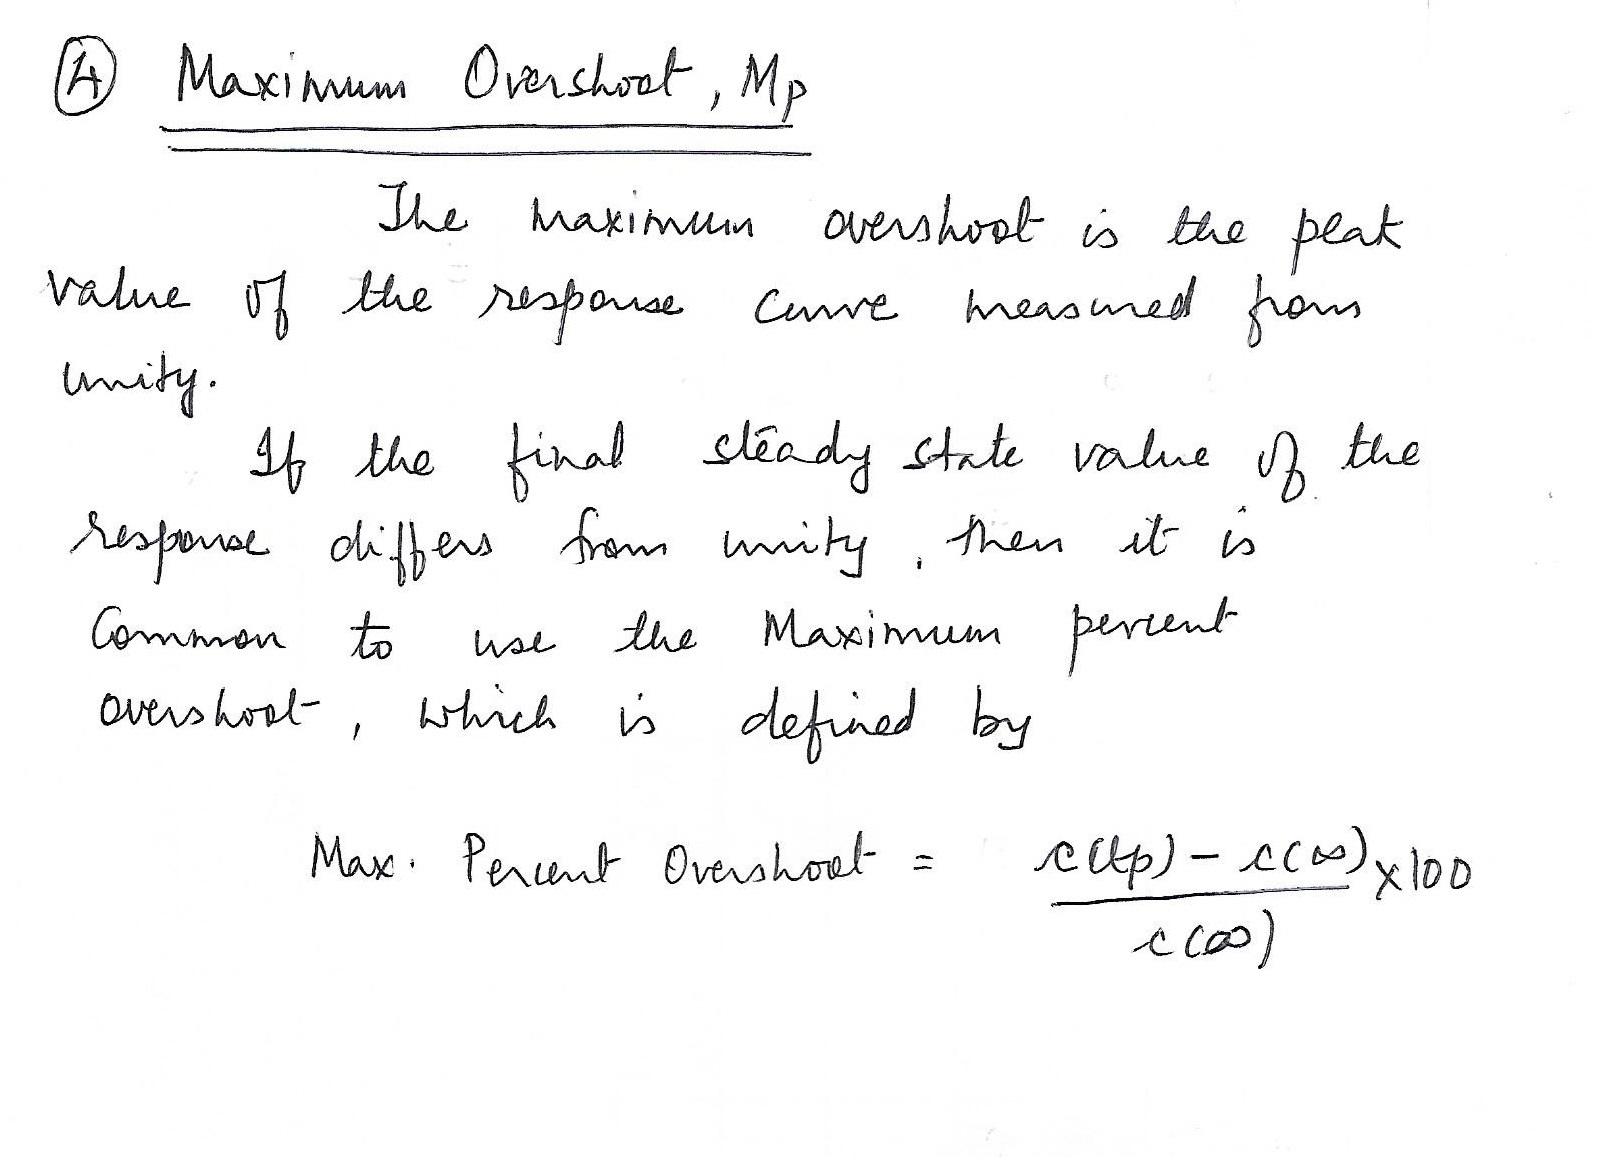 ④ Maximum Overshoot, Mp
The maximum overshoot is the peak
value of the response curve measured from
unity.
If the final steady state value of the
response differs from unity, then it is
Common to use the Maximum percent
overshoot, which is defined by
Max. Percent Overshoot = c(tp) - c(∞) x100
c(∞)